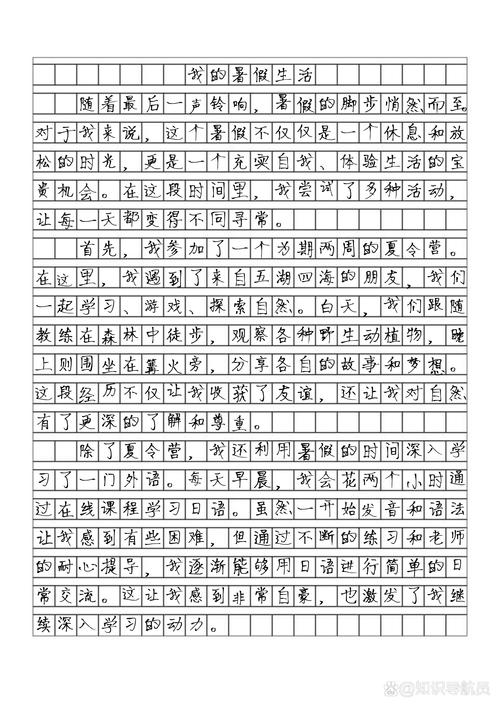 我的暑假生活
随着最后一声铃响，暑假的脚步悄然而至。
对于我来说，这个暑假不仅仅是一个休息和放
松的时光，更是一个充实自我、体验生活的宝
贵机会。在这段时间里，我尝试了多种活动，
让每一天都变得不同寻常。
首先，我参加了一个为期两周的夏令营。
在这里，我遇到了来自五湖四海的朋友，我们
一起学习、游戏、探索自然。白天，我们跟随
教练在森林中徒步，观察各种野生动植物，晚
上则围坐在篝火旁，分享各自的故事和梦想。
这段经历不仅让我收获了友谊，还让我对自然
有了更深的了解和尊重。
除了夏令营，我还利用暑假的时间深入学
习了一门外语。每天早晨，我会花两个小时通
过在线课程学习日语。虽然一开始发音和语法
让我感到有些困难，但通过不断的练习和老师
的耐心提导，我逐渐能够用日语进行简单的日
常交流。这让我感到非常自豪，也激发了我继
续深入学习的动力。
@知识导航员